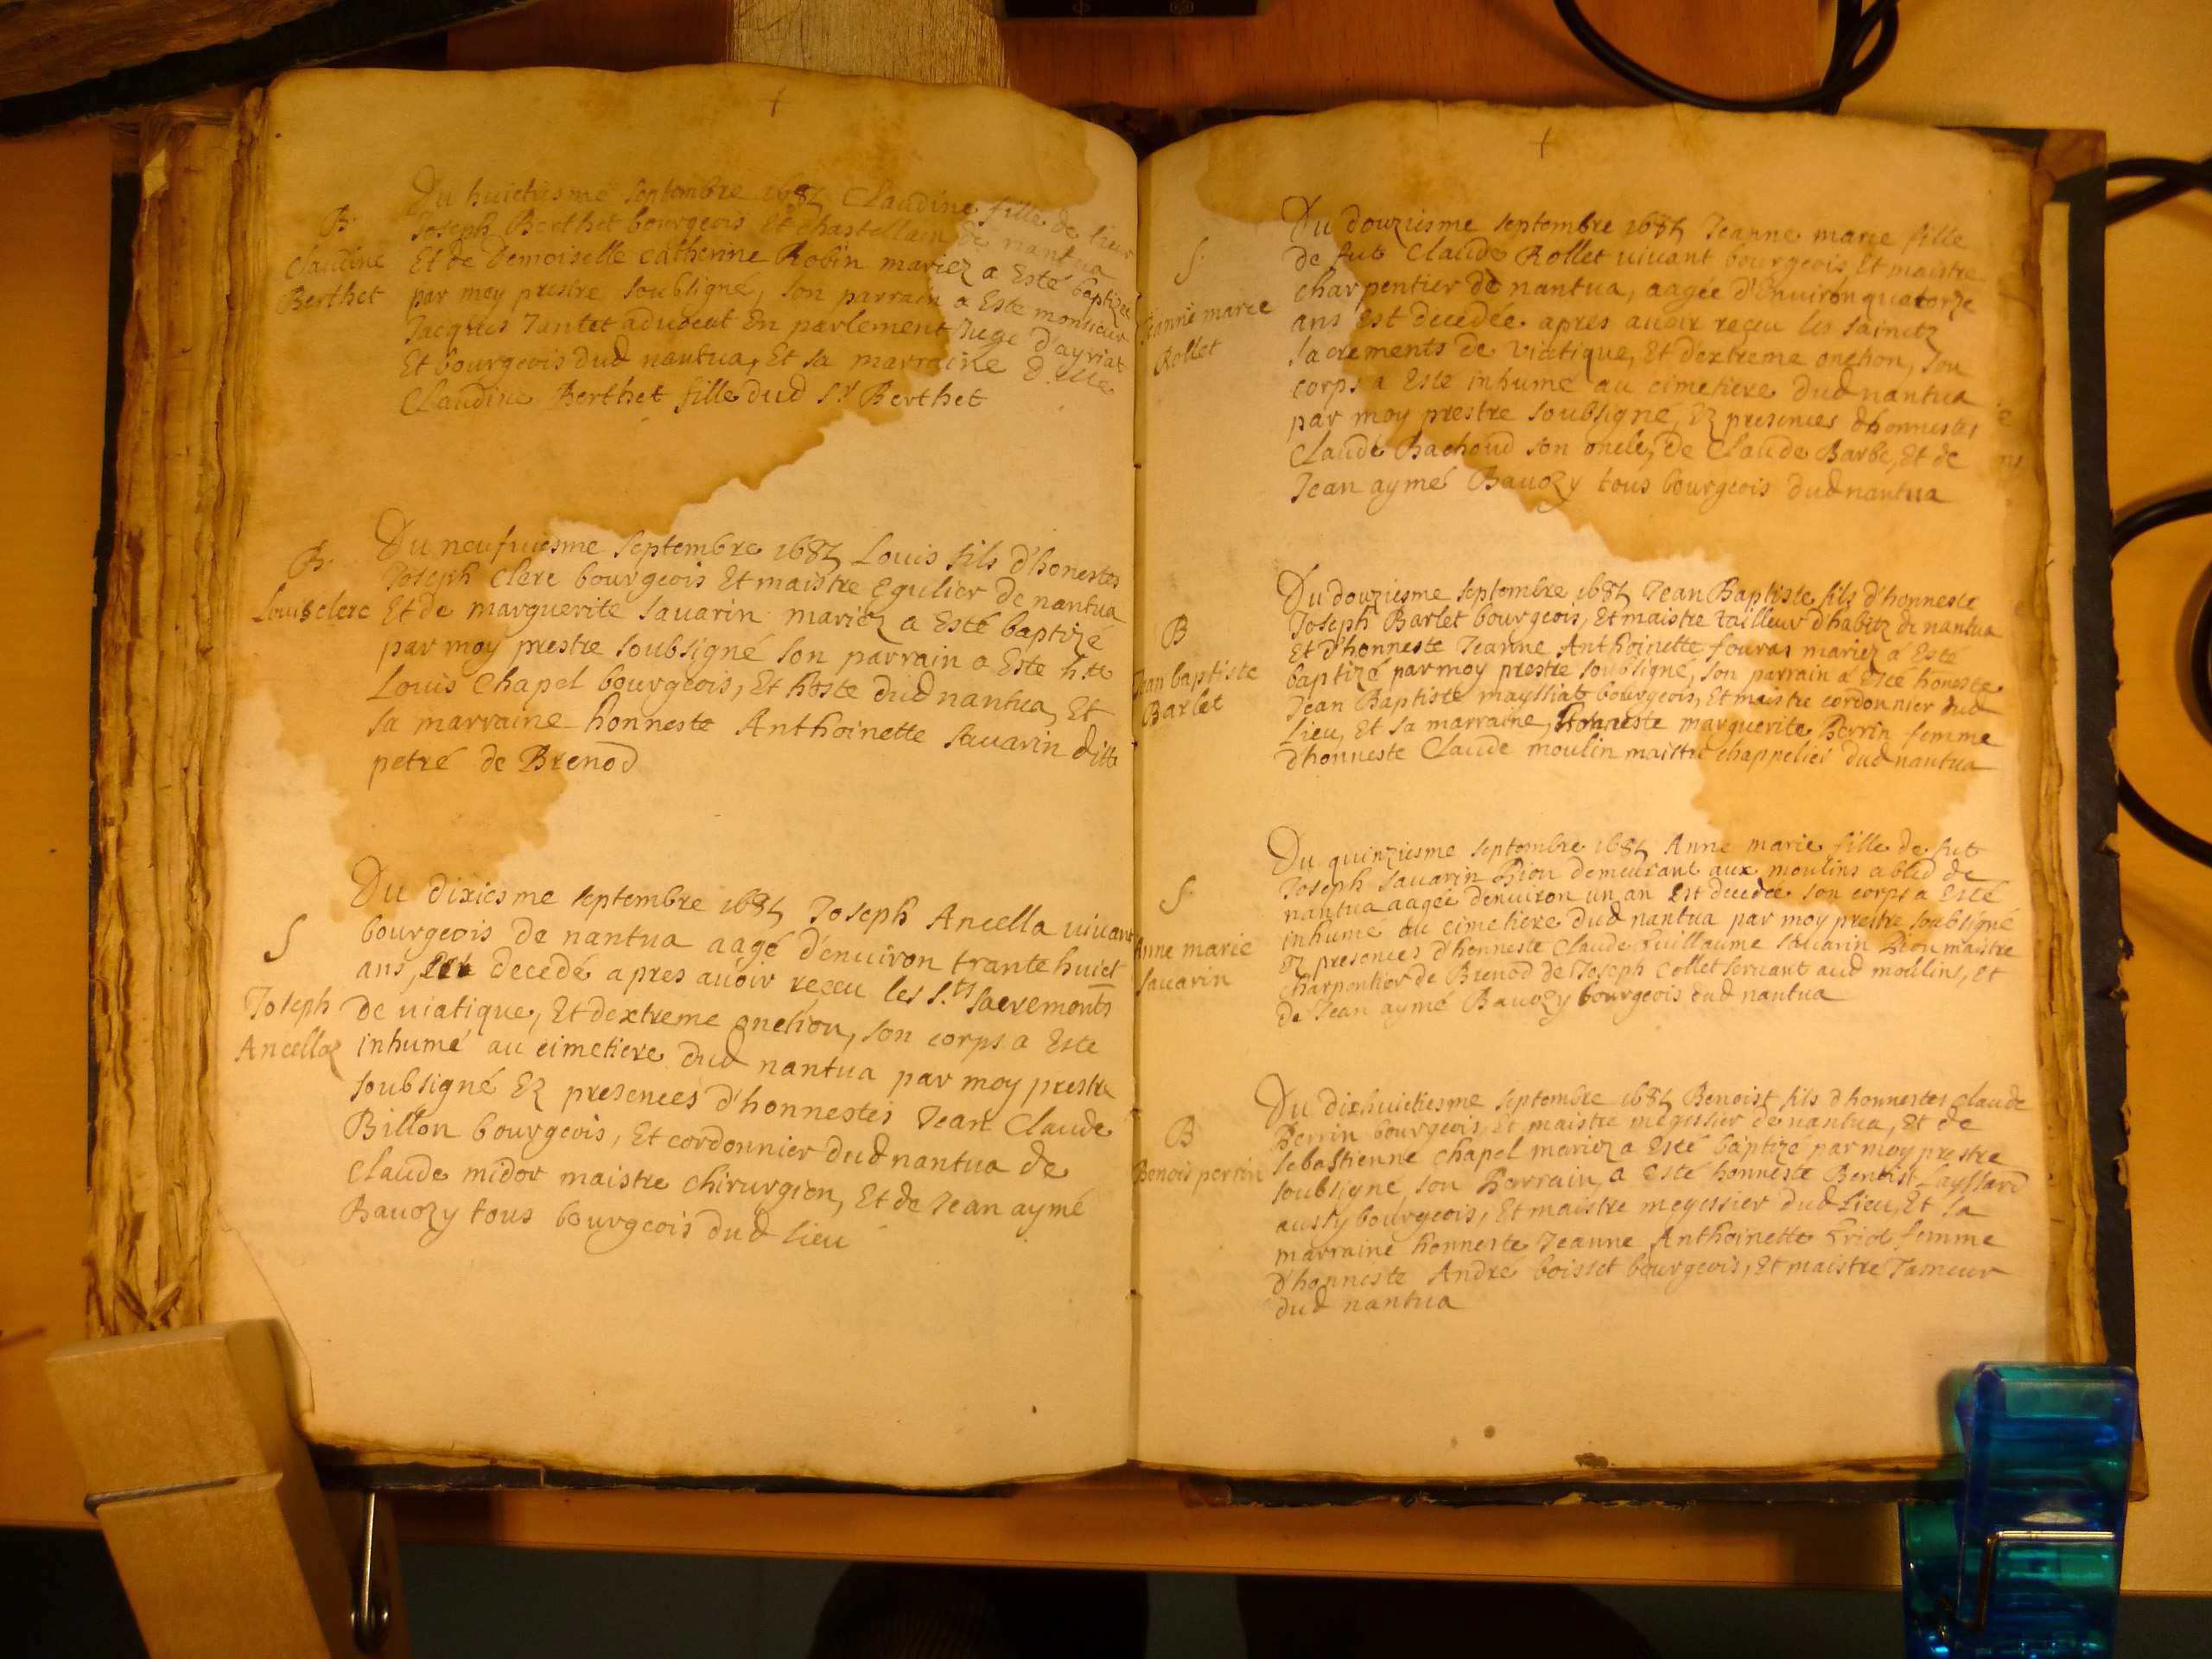 +
B.
Claudine
Berthet
Du huictiesme septembre 1684 Claudine fille de sieur
Joseph Berthet bourgeois Et chastellain de nantua
Et de Demoiselle catherine Robin mariez a Esté baptizée
par moy prestre soubsigné, son parrain a Este monsieur
Jacques Jantet aduocat En parlement Juge d'ayriat
Et bourgeois dud nantua, Et sa marraine d.lle
Claudine Berthet fille dud Sr Berthet
B.
Louis clerc
Du neufuiesme septembre 1684 Louis fils d'honestes
Joseph clerc bourgeois Et maistre Egulier de nantua
Et de marguerite sauarin mariez a Esté baptizé
par moy prestre soubsigné son parrain a Este h.te
Louis Chapel bourgeois, Et hoste dud nantua, Et
sa marraine honneste Anthoinette sauarin ditte
petré de Brenod
S
Joseph
Ancella
Du dixiesme septembre 1684 Joseph Ancella uiuant
bourgeois de nantua aagé d'enuiron trante huict
ans, Est decedé apres auoir reçeu les S.ts sacrements
de uiatique, Et dextreme onction, son corps a Este
inhumé au cimetiere dud nantua par moy prestre
soubsigné Ez presences d'honnestes Jean Claude
Billon bourgeois, Et cordonnier dud nantua de
Claude midor maistre chirurgien, Et de Jean aymé
Bauozy tous bourgeois dud lieu
+
S.
Jeanne marie
Rollet
Du douziesme septembre 1684 Jeanne marie fille
de fut Claude Rollet uiuant bourgeois Et maistre
charpentier de nantua, aagée d'Enuiron quatorze
ans Est decedée apres auoir reçeu les sainctz
sacrements de viatique, Et d'extreme onction, son
corps a Esté inhumé au cimetiere dud nantua
par moy prestre soubsigné, Ez presences dhonnestes
Claude Bachoud son oncle, de Claude Barbe, Et de
Jean aymé Bauozy tous bourgeois dud nantua
B
Jean baptiste
Barlet
Du douziesme septembre 1684 Jean Baptiste fils d'honneste
Joseph Barlet bourgeois, Et maistre tailleur dhabitz de nantua
Et d'honneste Jeanne Anthoinette fouras mariez a Esté
baptizé par moy prestre soubsigné, son parrain a Esté honeste
Jean Baptiste mayssiat bourgeois, Et maistre cordonnier dud
Lieu, Et sa marraine, honneste marguerite Perrin femme
dhonneste Claude moulin maistre chappelier dud nantua
S.
Anne marie
Sauarin
Du quinziesme septembre 1684 Anne marie fille de fut
Joseph sauarin Pion demeurant aux moulins a bled de
nantua aagée d'enuiron un an Est decedée son corps a Esté
inhumé au cimetiere dud nantua par moy prestre soubsigné
Ez presences d'honneste Claude Guillaume sauarin Pion maistre
charpentier de Brenod de Joseph Collet seruant aud moulins, Et
de Jean aymé Bauozy bourgeois dud nantua
B
Benois perrin
Du dixhuictiesme septembre 1684 Benoist fils d'honnestes Claude
Perrin bourgeois, Et maistre megissier de nantua, Et de
sebastienne Chapel mariez a Esté baptizé par moy prestre
soubsigné, son Parrain, a Esté honneste Benoist Layssard
aussy bourgeois, Et maistre megissier dud Lieu, Et sa
marraine honneste Jeanne Anthoinette femme
d'honneste André boisset bourgeois, Et maistre Taneur
dud nantua